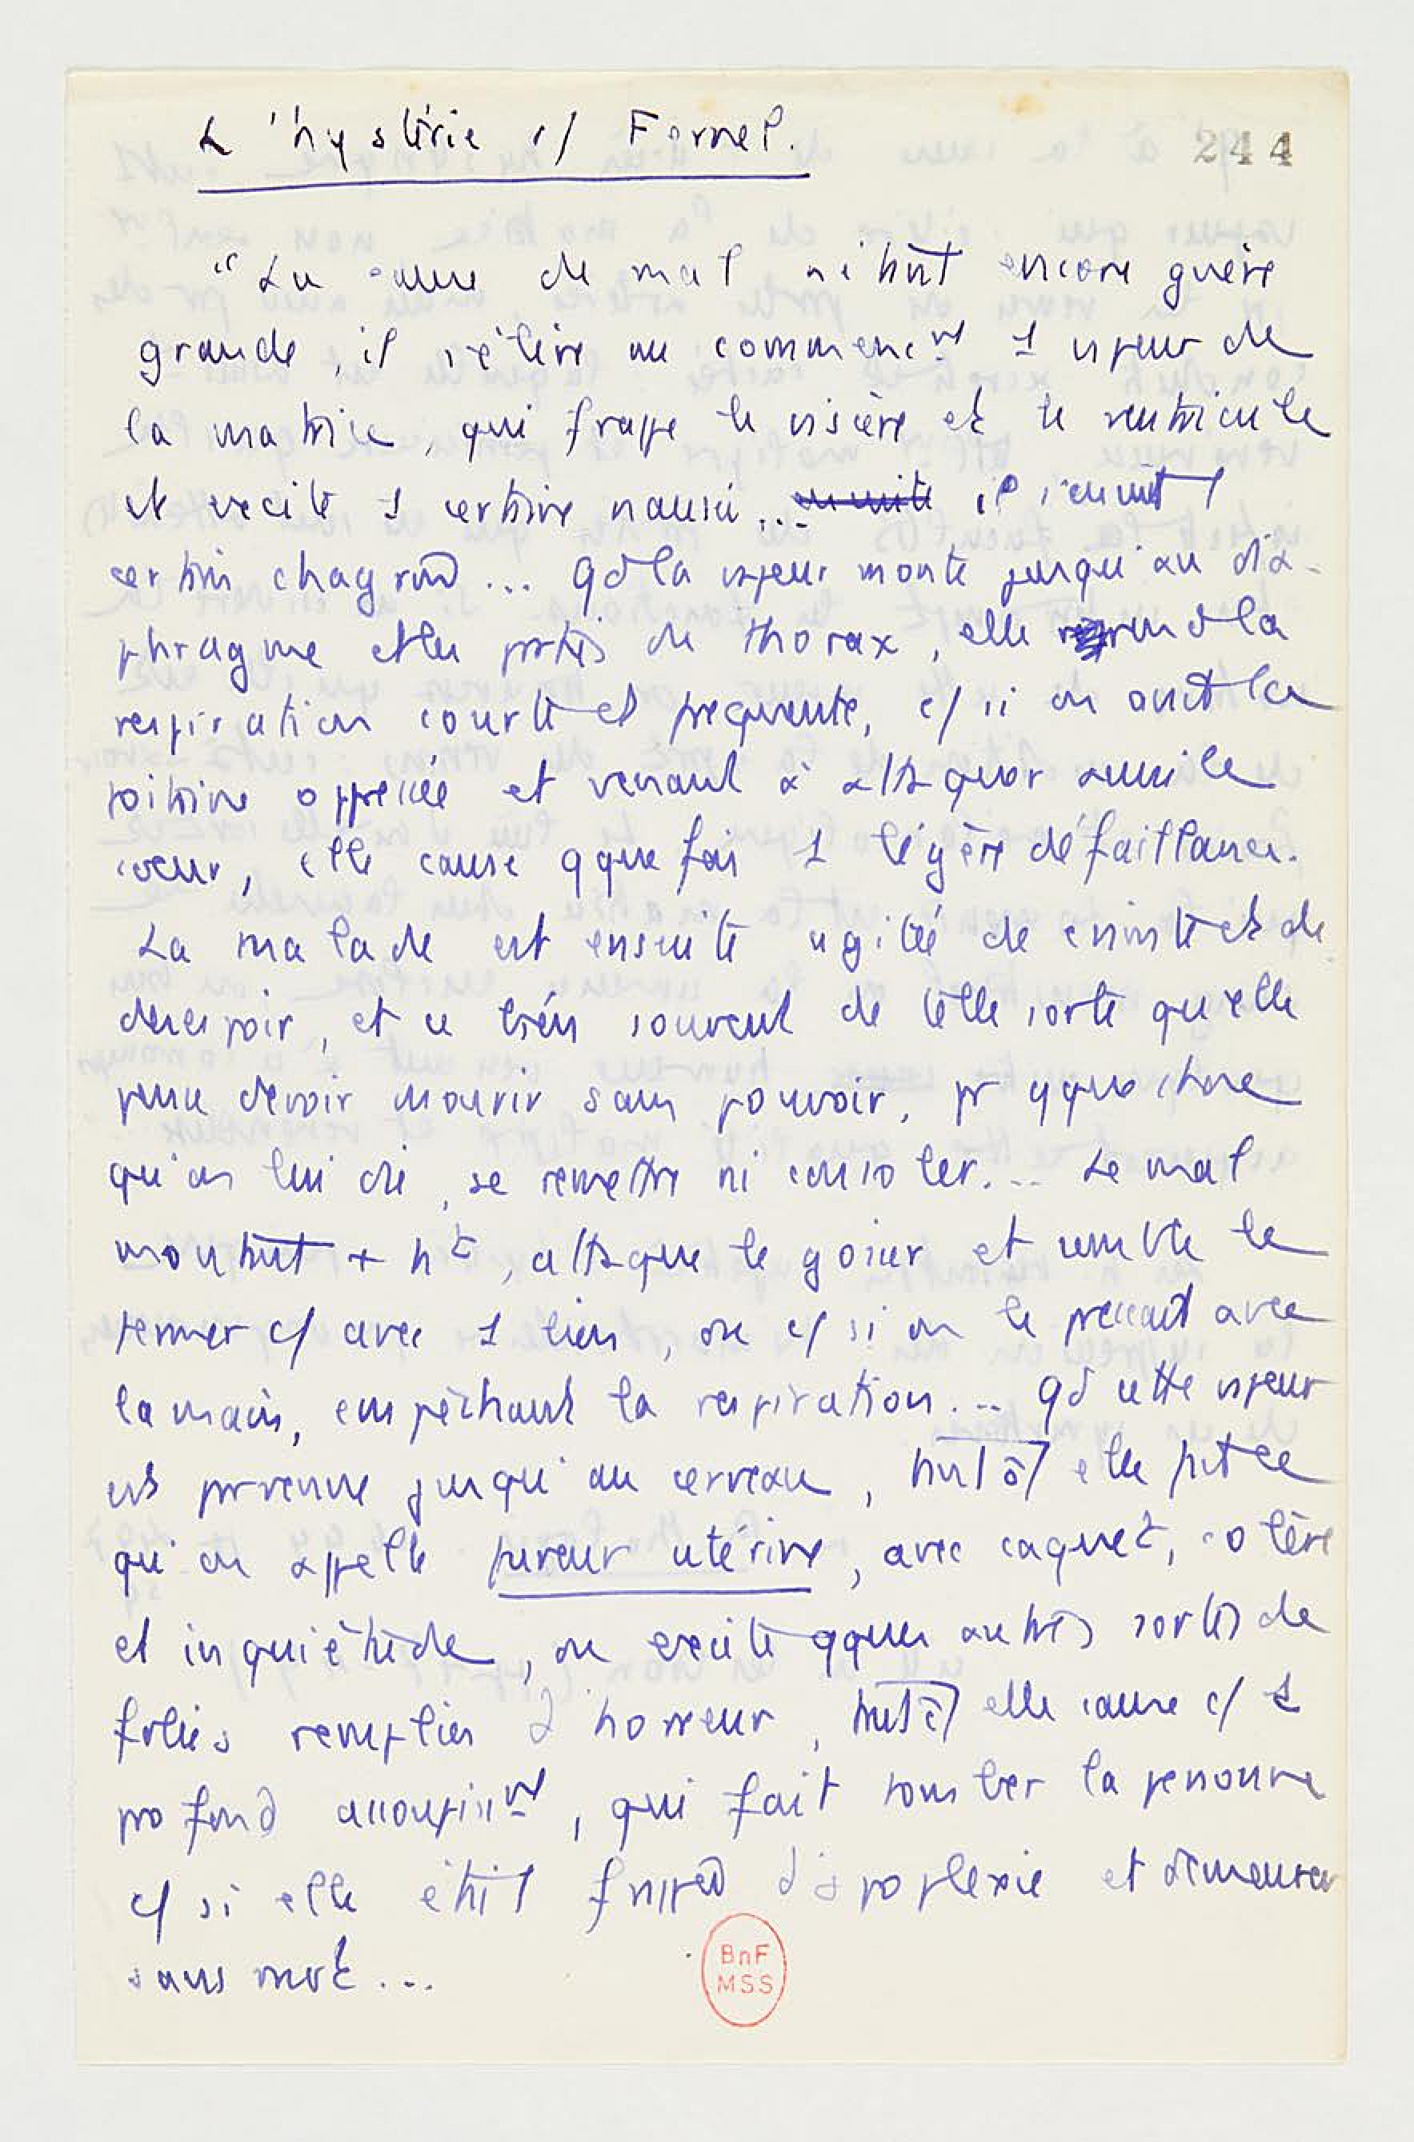 L'hystérie c/ Fernel.
244
"La cause de mal n'étant encore guère
grande, il s'élève au commencnt 1 vapeur de
la matrice, qui frappe le viscère et le ventricule
et excite 1 certaine nausée... ensuite il s'ensuit 1
certain chagrin... qd la vapeur monte jusqu'au dia-
phragme et les parties du thorax, elle rend la
respiration courte et frequente, c/ si on avait la
poitrine oppressée et venant à attaquer aussi le
coeur, elle cause qque fois 1 légère défaillance.
La malade est ensuite agitée de crainte et de
desespoir, et ce bien souvent de telle sorte qu'elle
pense devoir mourir sans pouvoir, pr qque chose
qu'on lui die, se remettre ni consoler... Le mal
montant + ht, attaque le gosier et semble le
fermer c/ avec 1 lien, ou c/ si on le pressait avec
la main, empêchant la respiration... qd cette vapeur
est parvenue jusqu'au cerveau, tantôt elle fait ce
qu'on appelle fureur utérine, avec caquet, colère
et inquiétude, ou excite qques autres sortes de
folies remplies d'horreur, tantôt elle cause c/ 1
profond assoupisnt, qui fait tomber la personne
c/ si elle était frappée d'apoplexie et demeurer
sans mot...
BnF
MSS